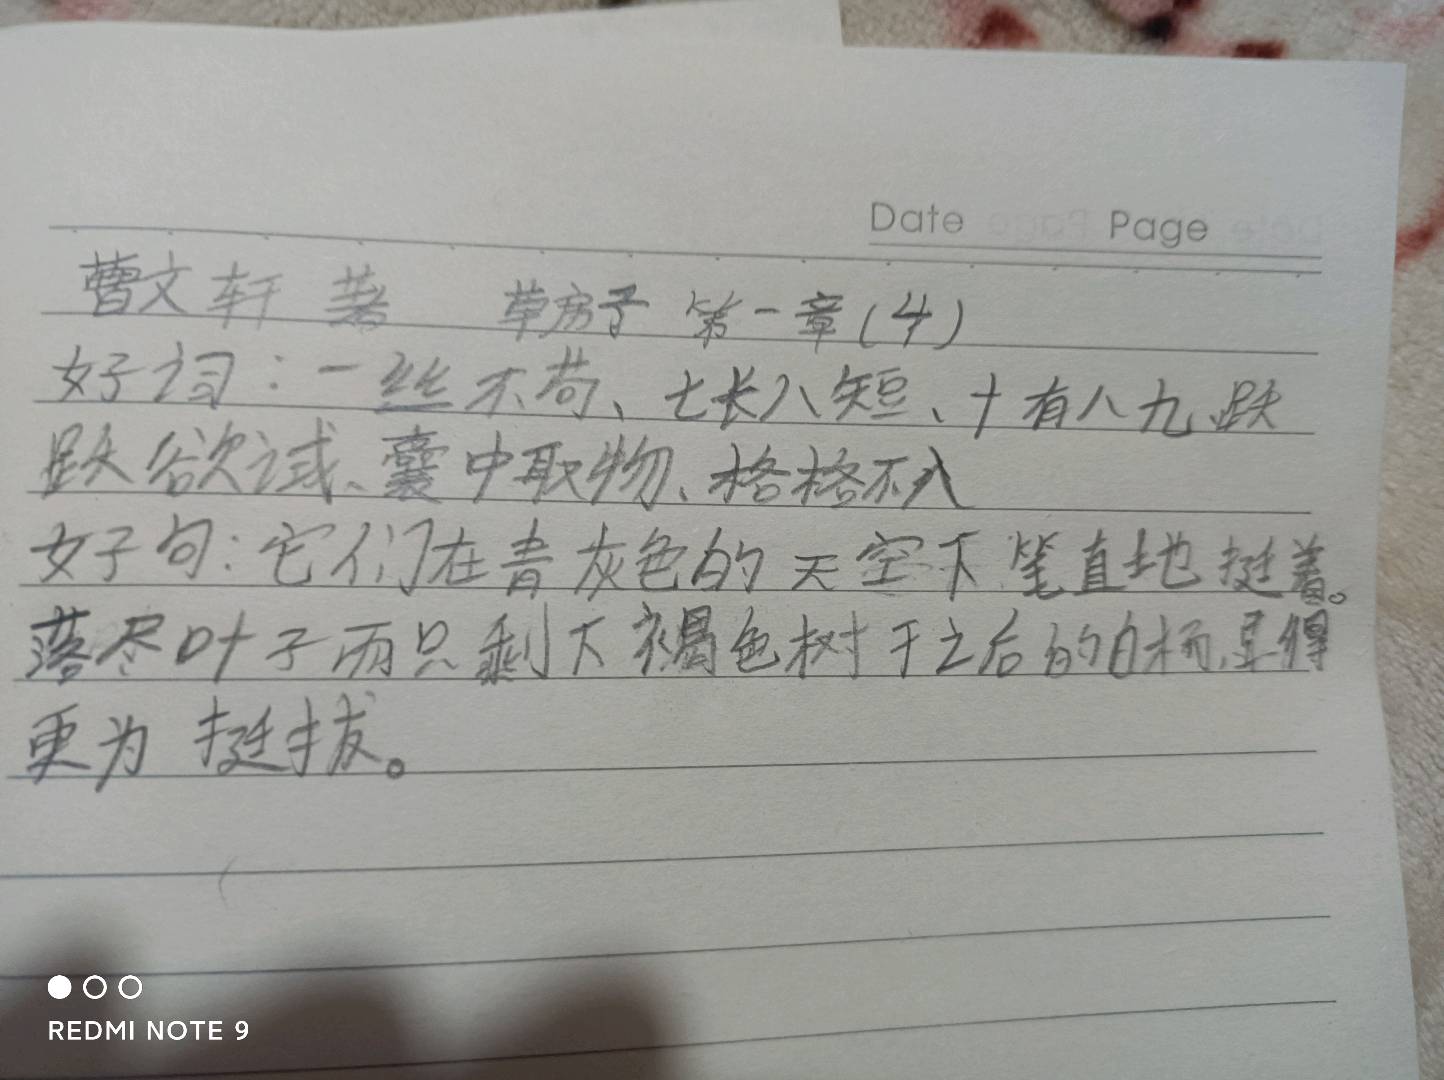 Date Page
曹文轩 著 草房子 第一章(4)
好词:一丝不苟、七长八短、十有八九 跃
跃欲试、囊中取物、格格不入
好句:它们在青灰色的天空下笔直地挺着。
落尽叶子而只剩下褐色树干之后的白杨,显得
更为挺拔。
REDMI NOTE 9